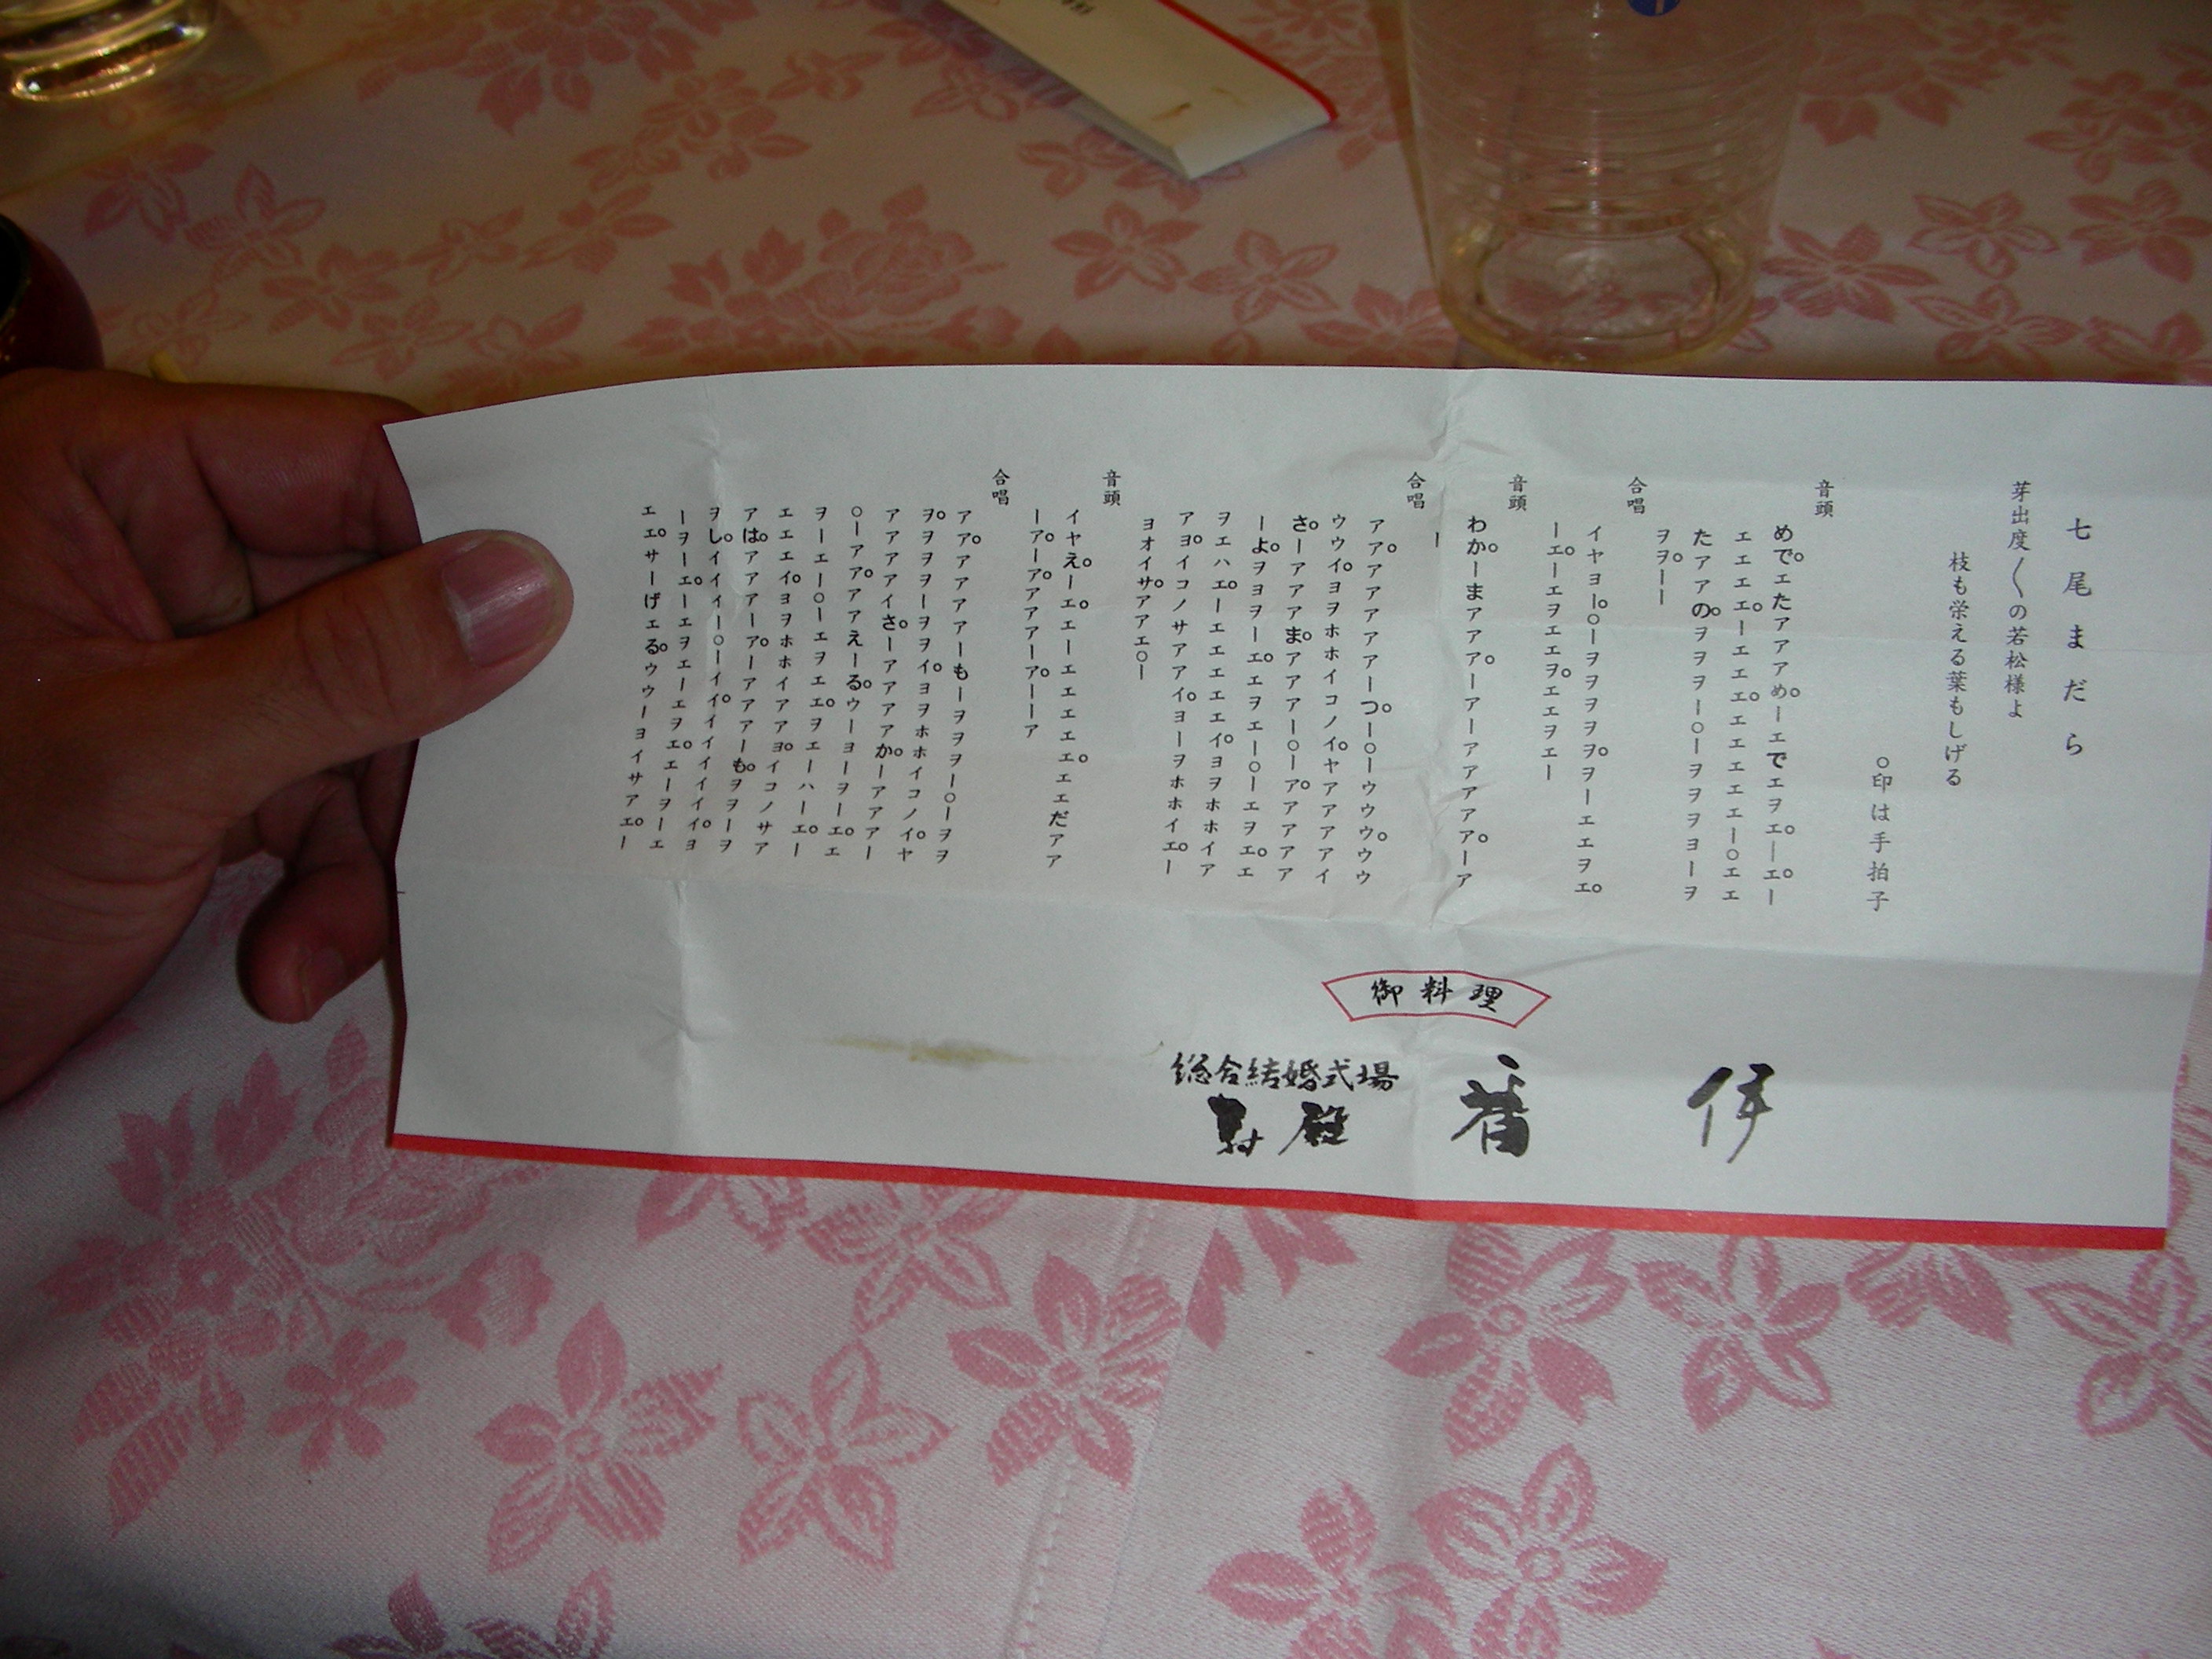 七尾まだら
芽出度〱の若松様よ
枝も栄える葉もしげる
○印は手拍子
音頭
めでェたアアアめーェでェヲェーェー
エエエェーエエェエエエエー○エエ
たアアのヲヲヲー○ーヲヲヲヨーヲ
ヲヲーー
合唱
イヤヨー○ーヲヲヲヲヲヲーエエヲェ
ーェーエヲエエヲエエヲエー
音頭
わかーまアアアーアーアアアアアーア
合唱
ー
アアアアアアアーつー○ーウウウウウ
ウウイヨヲホホイコノイヤアアアアイ
さーアアアまアアアー○ーアアアアア
ーよヲヨヲーェエヲエー○ーエヲエエ
ヲエハェーエエエエエイヨヲホホイア
アヨイコノサアアイヨーヲホホイェー
ヨオイサアアエ○ー
音頭
イヤえーェエーエエエエエェエだアア
ーアーアアアアーアーーア
合唱
アアアアアアーもーヲヲヲー○ーヲヲ
ヲヲヲヲーヲヲイヨヲホホイコノイヤ
アアアアイさーアアアアかーアアアー
○ーアアアアえーるウーヨーヲーェエ
ヲーエー○ーエヲエエヲエーハーェー
エエエイヨヲホホイアアヨイコノサア
アはアアアーアーアアアーもヲヲーヲ
ヲしイイイー○ーイイイイイイイイヨ
ーヲーェーエヲエーエヲエエーヲーエ
エエサーげェるウウーヨイサアェー
御料理
伊
番
総合結婚式場
寿殿